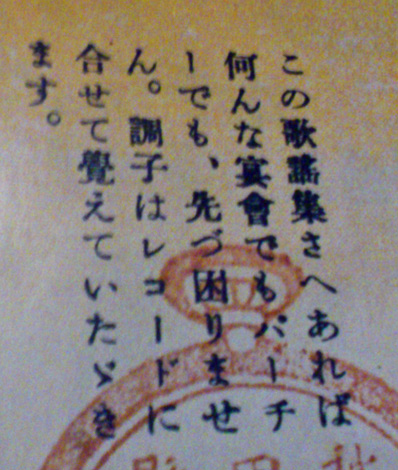 この歌謡集さへあれば
何んな宴會でもパーチ
ーでも、先づ困りませ
ん。調子はレコードに
合せて覺えていたゞき
ます。